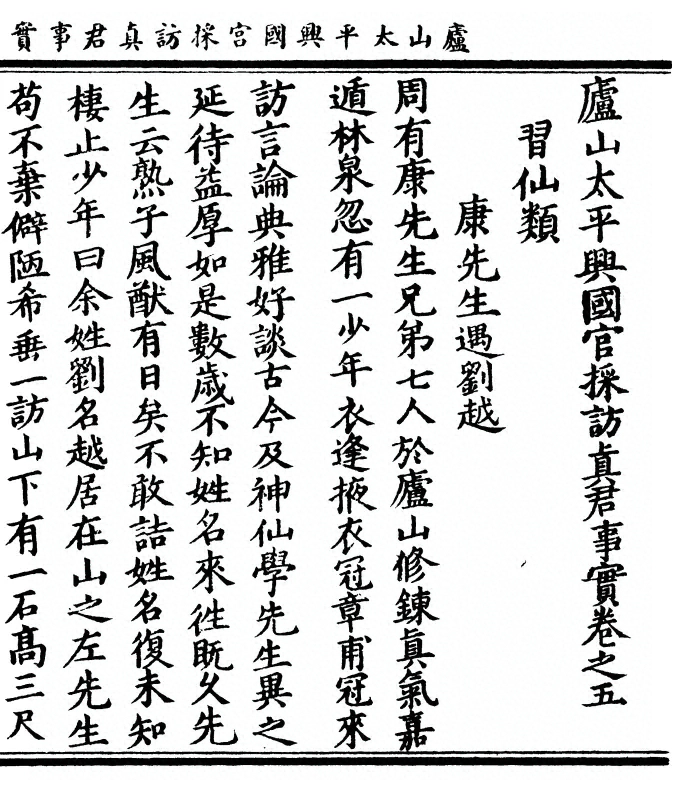 廬山太平興國宮採訪真君事實
廬山太平興國官採訪真君事實卷之五
習仙類
康先生遇劉越
周有康先生兄弟七人於廬山修鍊真氣嘉
遁林泉忽有一少年衣逢掖衣冠章甫冠來
訪言論典雅好談古今及神仙學先生異之
延待益厚如是數歲不知姓名來徃旣久先
生云熟子風猷有日矣不敢詰姓名復未知
棲止少年曰余姓劉名越居在山之左先生
苟不棄僻陋希垂一訪山下有一石髙三尺